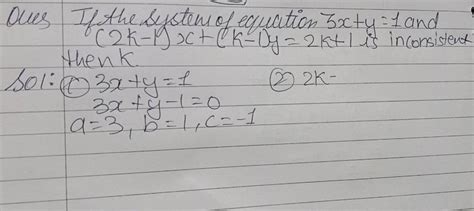 Ques If the system of equation 3x+y=1 and
(2K-1)x+(K-1)y=2K+1 is inconsistent
then K.
Sol: ① 3x+y=1 ② 2K-
3x+y-1=0
a=3, b=1, c=-1